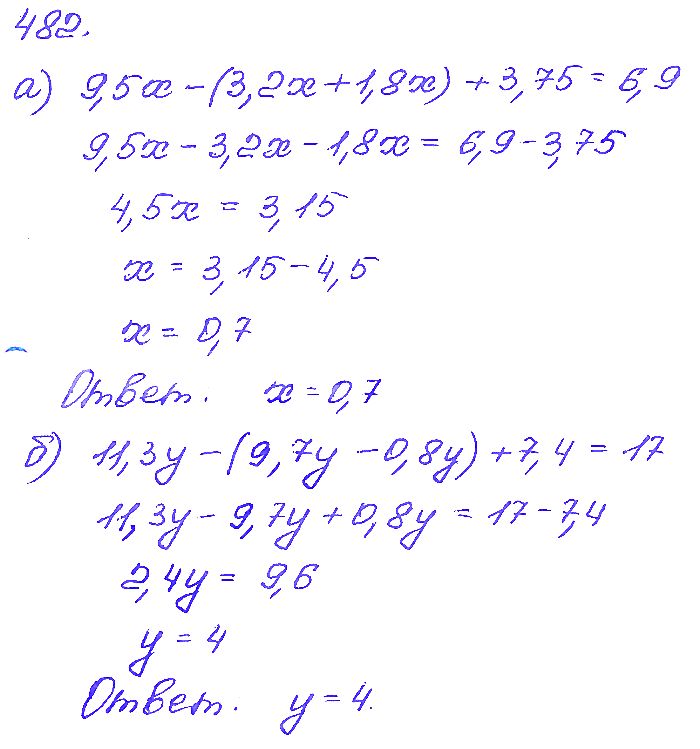 482.
а) 9,5x - (3,2x + 1,8x) + 3,75 = 6,9
9,5x - 3,2x - 1,8x = 6,9 - 3,75
4,5x = 3,15
x = 3,15 - 4,5
x = 0,7
Ответ. x = 0,7
б) 11,3y - (9,7y - 0,8y) + 7,4 = 17
11,3y - 9,7y + 0,8y = 17 - 7,4
2,4y = 9,6
y = 4
Ответ. y = 4.